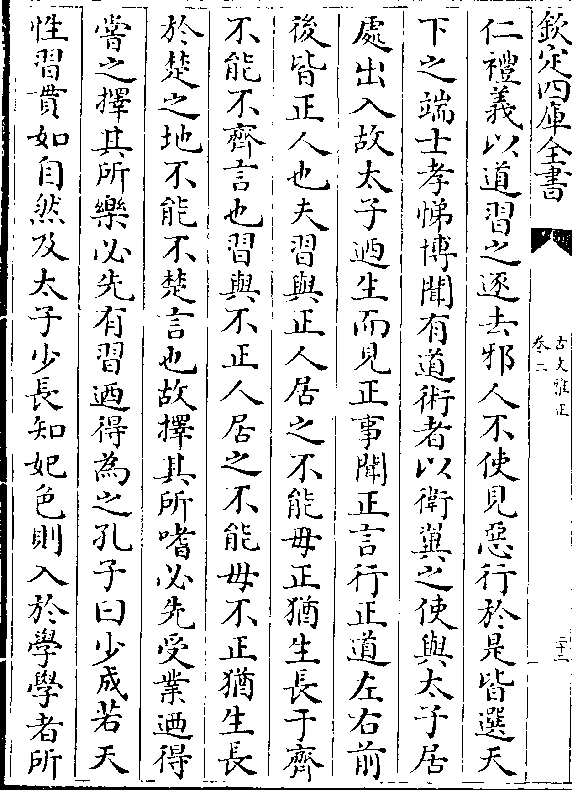 欽定四庫全書
古文雅正
卷二
三十二
仁禮義以道習之逐去邪人不使見惡行於是皆選天
下之端士孝悌博聞有道術者以衛翼之使與太子居
處出入故太子迺生而見正事聞正言行正道左右前
後皆正人也夫習與正人居之不能毋正猶生長于齊
不能不齊言也習與不正人居之不能毋不正猶生長
於楚之地不能不楚言也故擇其所嗜必先受業迺得
嘗之擇其所樂必先有習迺得為之孔子曰少成若天
性習貫如自然及太子少長知妃色則入於學學者所